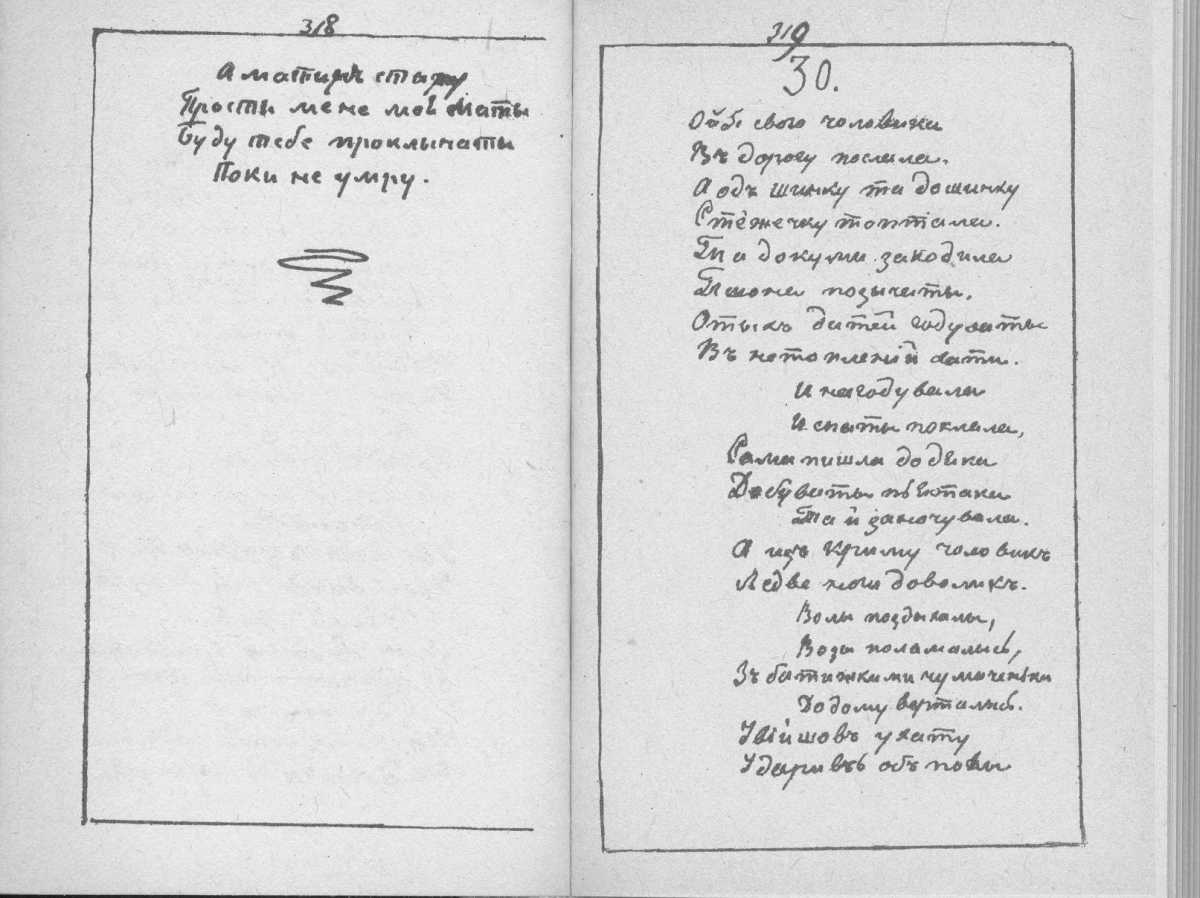 318
А матирь стару
Прости мене моя Маты
Буду тебе проклынаты
Поки не умру.
319
30.
Ой я свого чоловика
Въ дорогу послала.
А одъ шинку та до шинку
Стежечку топтала.
Та до кумы заходила
Пшона позычаты.
Отыхъ дитей годуваты
Въ нетопленій хати.
И нагодувала
И спаты поклала,
Сама пишла до дяка
Добуваты пятака
Та й заночувала.
А изъ Криму чоловикъ
Ледве ноги доволикъ.
Волы поздыхалы,
Возы поламались,
Зъ батижками чумаченьки
До дому вертались.
Увійшовъ у хату
Ударивъ объ полы